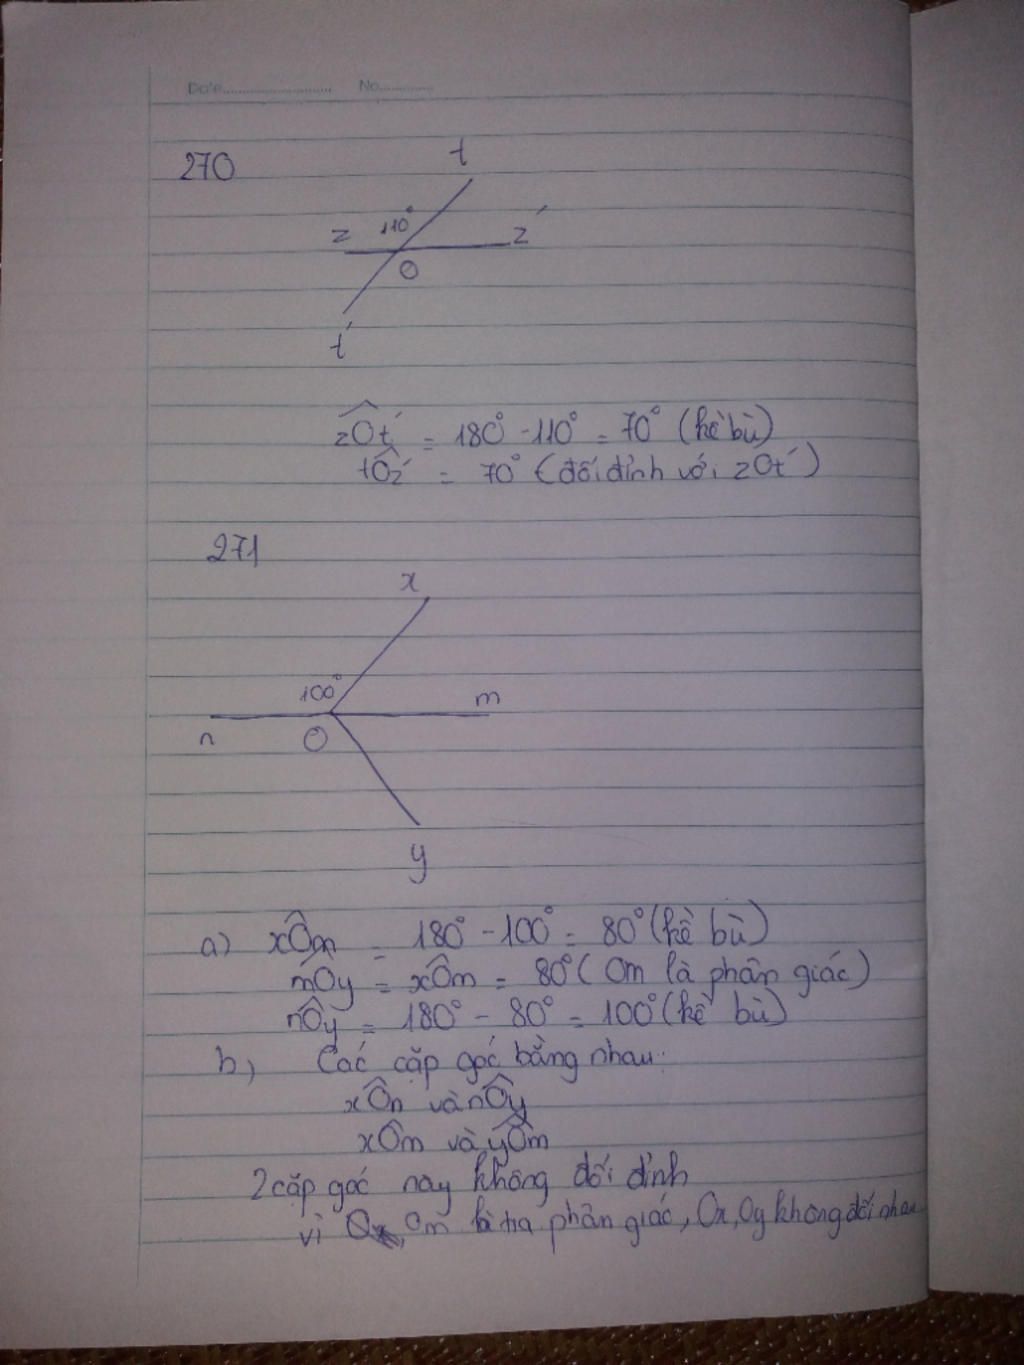 Date.............................. No...............
270
t
110°
z z'
O
t'
zOt' = 180° - 110° = 70° (kề bù)
tOz' = 70° (đối đỉnh với zOt')
271
x
100°
m
n O
y
a) xÔm = 180° - 100° = 80° (kề bù)
mÔy = xÔm = 80° (Om là phân giác)
nÔy = 180° - 80° = 100° (kề bù)
b) Các cặp góc bằng nhau:
xÔn và nÔy
xÔm và yÔm
2 cặp góc này không đối đỉnh
vì Om là tia phân giác, Ox, Oy không đối nhau